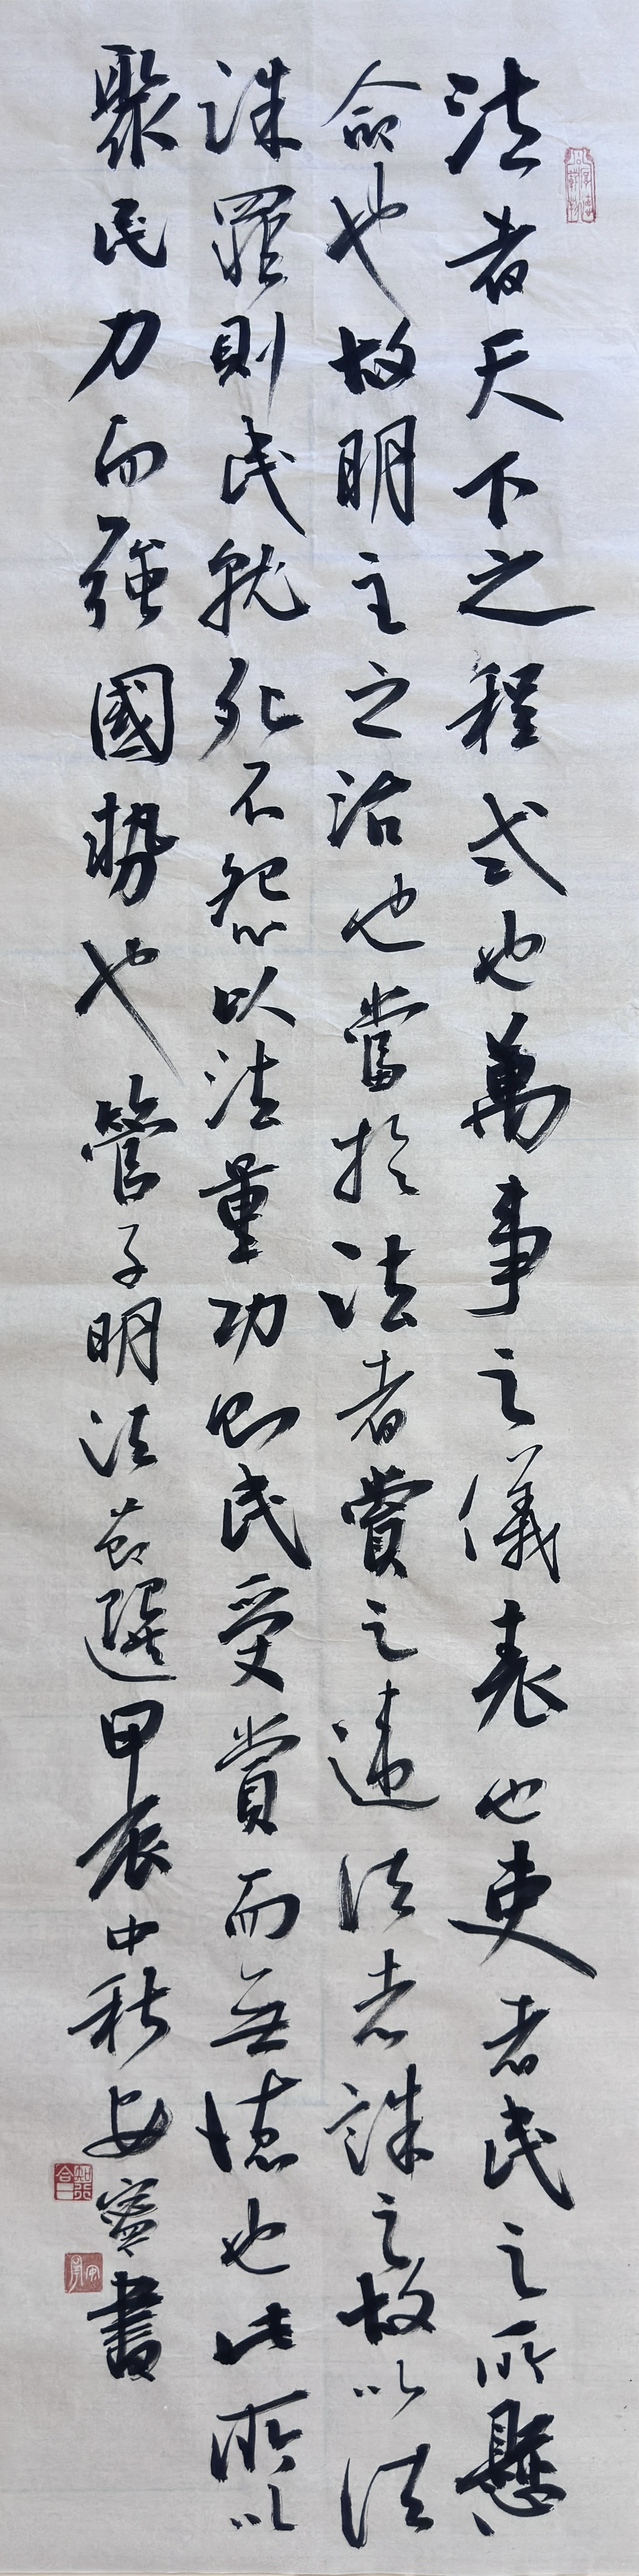 法者天下之程式也萬事之儀表也吏者民之所懸
命也故明主之治也當於法者賞之違法者誅之故以法
誅罪則民就死不怨以法量功則民受賞而無德也此所以
聚民力而強國勢也管子明法節選甲辰中秋安寧書
知行合一